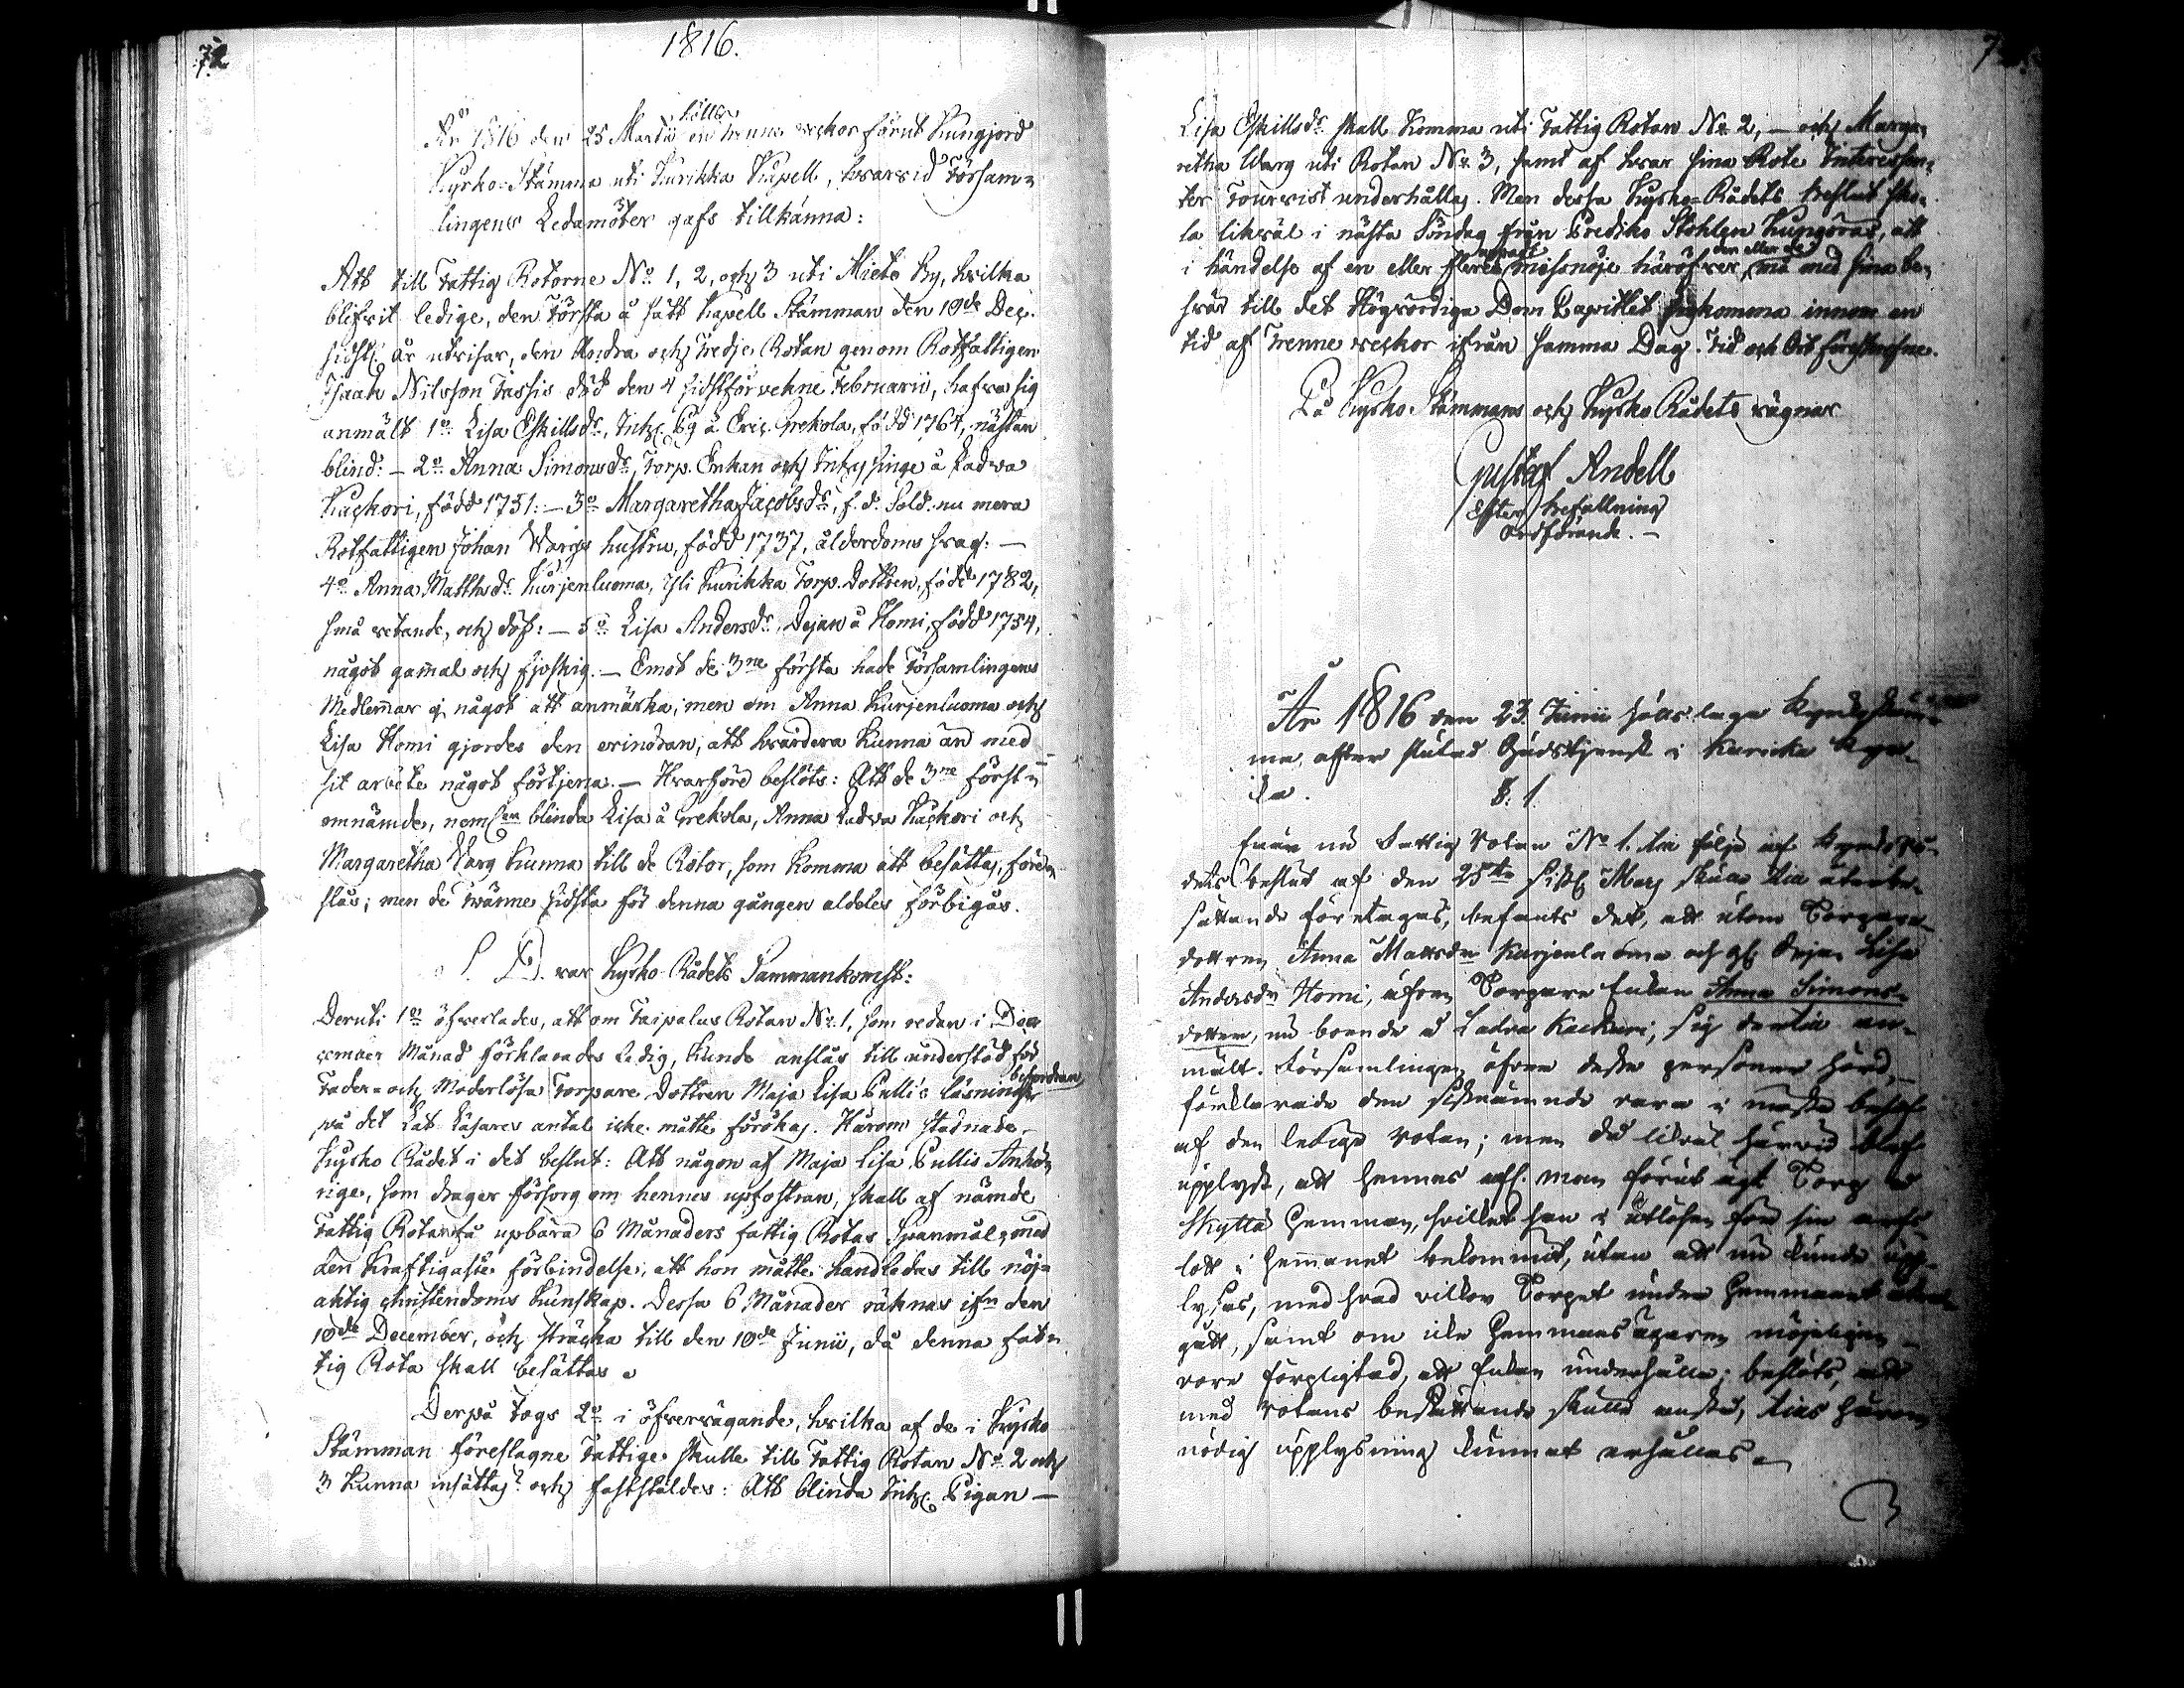 72
1816.
hölls
År 1816 den 25 Martii en trenne veckor förut kungjord
Kyrko-Stämma uti Kurikka Kapell, hvarvid Försam=
lingens Ledamöter gafs tillkänna:
Att till Fattig Rotorne No 1, 2, och 3 uti Mieto By, hvilka
blifvit ledige, den Första å sätt Kapell Stämman den 10de Dec.
sidstl. år utvisar, den Andra och Tredje Rotan genom Rotfattigen
Isaak Nilsson Tassis död den 4 sidstförvekne Februarii, hafva sig
anmält 1o Lisa Eskillsdr, Inh. Pg å Eric Grekola, född 1764, nästan
blind: — 2o Anna Simonsdr, Torp. Enkan och Inhysinge å Ladva
Kackori, född 1751: — 3o Margaretha Jacobsdr, f.d. Sold. nu mera
Rotfattigen Johan Wargs hustru, född 1737, ålderdoms svag: —
4o Anna Matthsdr Kurjenluoma, Yli Kurikka Torp. Dottren, född 1782,
små vetande, och döf: — 5o Lisa Andersdr, Dejan å Homi, född 1754,
något gammal och sjoskig. — Emot de 3ne första hade Församlingens
Medlemmar ej något att anmärka; men om Anna Kurjenluoma och
Lisa Homi gjordes den erindran, att hvardera kunna än med
sit arbete något förtjena. — Hvarföre beslöts: Att de 3ne först=
omnämde, neml.en blinda Lisa å Grekola, Anna Ladva Kackori och
Margaretha Warg kunna till de Rotor, som komma att besättas, före=
slås; men de tvänne sidsta för denna gången aldeles förbigås.
S. D. var Kyrko Rådets Sammankomst:
Deruti 1o öfverlades, att om Taipalus Rotan No 1, som redan i De=
cember Månad förklarades ledig, kunde anslås till understöd för
Fader- och Moderlösa Torpare Dottren Maja Lisa Pullis läsnings
befordran
på det Lat Läsares antal icke måtte förökas. Härom stadnade
Kyrko Rådet i det beslut: Att någon af Maja Lisa Pullis Anhö=
rige, som drager försorg om hennes upfostran, skall af nämde
Fattig Rota få upbära 6 Månaders fattig Rotas Spanmål, med
den kraftigaste förbindelse, att hon måtte handledas till nöj=
aktig christendoms kunskap. Dessa 6 Månader räknas ifrn den
10de December, och sträcka till den 10de Junii, då denna fat=
tig Rota skall besättas.
Derpå togs 2o i öfvervägande, hvilka af de i Kyrko
Stämman föreslagne Fattige skulle till Fattig Rotan No 2 och
3 kunna insättas? och fastställdes: Att blinda Inh. Pigan —
Lisa Eskillsdr skall komma uti Fattig Rotan No 2, — och Marga=
retha Warg uti Rotan No 3, samt af hvar sina Rote Interessen=
ter Tourvist underhållas. Men dessa Kyrko-Rådets beslut sko=
la likväl i nästa Söndag från Predikostohlen kungöras, att
i händelse af en eller fleres missnöje häröfver, må med sina be=
den eller de
svär till det Högvördiga Dom Capitlet inkomma innom en
tid af Trenne veckor ifrån samma Dag. Tid och Ort föreskrefne.
På Kyrko-Stämmans och Kyrko Rådets vägnar
Gustaf Andell
Efter befallning
Ordförande. —
År 1816 den 23. Junii hölls laga Kyrkostäm=
ma efter slutad Gudstjenst i Kurikka Kyr=
ka.
§. 1.
Enär nu Fattig Rotan No 1. till följe af Kyrko Rå=
dets beslut af den 25te sistl. Mars skulle till återbe=
sättande företagas, befants det, att utom Torpare
dottren Anna Mattsdr Kurjenluoma och gl. Dejan Lisa
Andersdr Homi, äfven Torpare Enkan Anna Simons=
dotter, nu boende å Ladva Kackuri, sig dertill an=
mält. Församlingen öfver desse personer hörd,
förklarade den sistnämnde vara i mesta behof
af den lediga rotan; men då likväl härvid blef
upplyst, att hennes afl. man förut ägt Torp å
Skyttä Hemman, hvilket han i utlösen för sin arfs
lott i hemmanet bekommit, utan att nu kunde upp=
lysas, med hvad villkor Torpet under Hemmanet åter=
gått, samt om icke Hemmans ägaren möjligen
vore förpligtad, att Enkan underhålla; beslöts, att
med rotans besättande skulle anstå, tills härom
nödig upplysning kunnat erhållas.